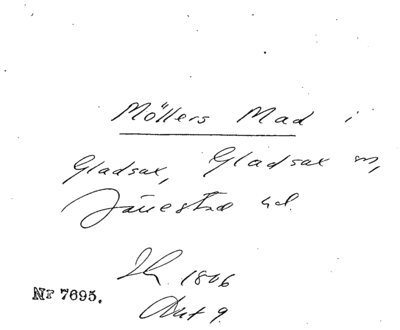 Möllers Mad i
Gladsax, Gladsax sn,
Järrestad hd.
1806
Akt 9.
Nr 7695.